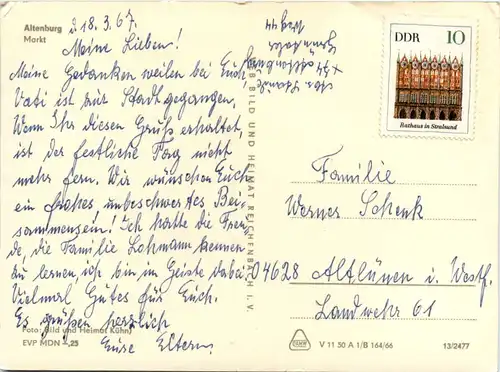 Altenburg
Markt
d 18.3.67.
Meine Lieben!
Meine Gedanken weilen bei Euch
Vati ist zur Stadt gegangen,
Wenn Ihr diesen Gruß erhaltet,
ist der festliche Tag nicht
mehr fern. Wir wünschen Euch
ein frohes unbeschwertes Bei-
sammensein! Ich hatte die Freu-
de, die Familie Lohmann kennen-
zu lernen, ich bin im Geiste dabei
Vielmal Gutes für Euch.
Es grüßen herzlich
Eure Eltern.
Foto: Bild und Heimat Kühn
EVP MDN -,25
BILD UND HEIMAT REICHENBACH I. V.
Weg 44
74 Altenburg
DDR 10
Rathaus in Stralsund
Familie
Werner Schenk
04628 Altlünen i. Westf.
Landwehr 61
V 11 50 A 1/B 164/66
13/2477